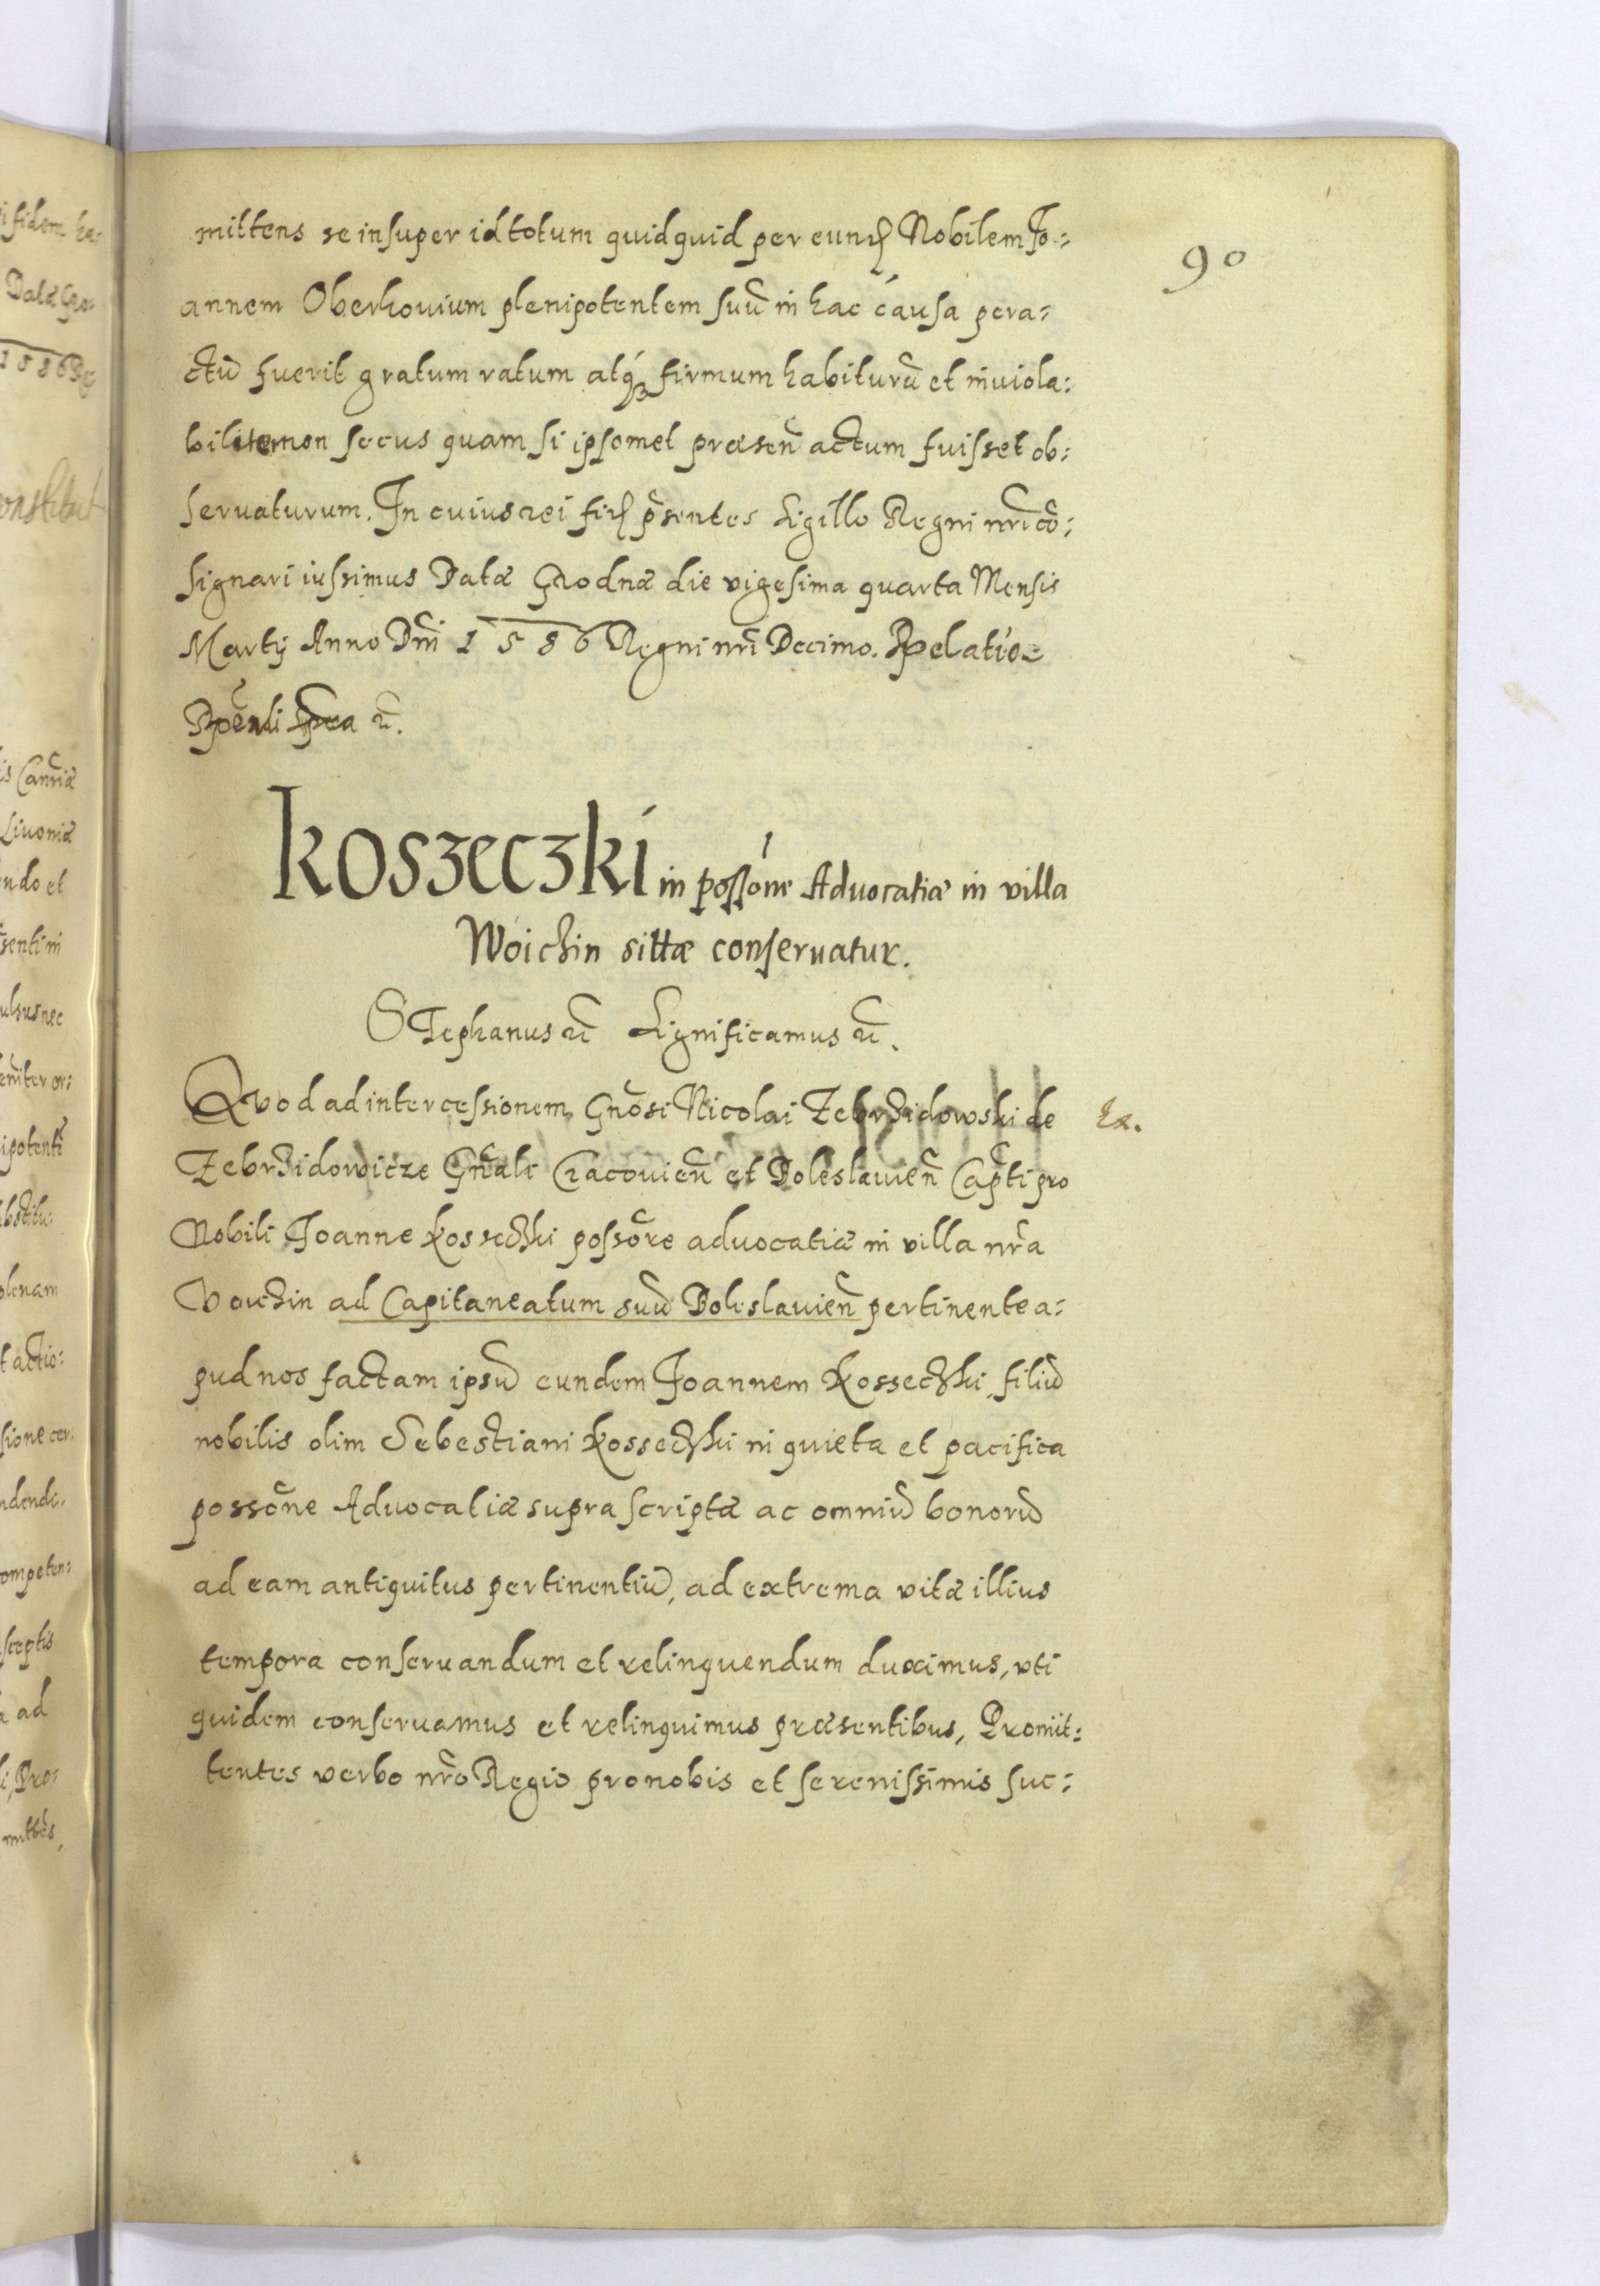 90
mittens se insuper id totum quidquid per eund Nobilem Jo=
annem Oberhouium plenipotentem suũ in hac causa pera=
ctũ fuerit gratum ratum atq3 firmum habiturũ et inuiola=
biliter non secus quam si ipsomet præseñ actum fuisset ob=
seruaturum. In cuius rei fid p̃sentes Sigillo Regni nr̃i cõ=
signari iussimus Datæ Grodnæ die vigesima quarta Mensis
Martij Anno Dñi 1586 Regni nr̃i Decimo. Relatio
Rẽndi
Koszeczki in possõne Aduocatiæ in villa
Woichin sittæ conseruatur.
Stephanus etc̃ Significamus etc̃.
Quod ad intercessionem Gñosi Nicolai Zebrzidowski de
Ex.
Zebrzidowicze Gñali Cracouieñ et Boleslauieñ Capti pro
Nobili Joanne Kosseczki possõre aduocatiæ in villa nr̃a
Voichin ad Capitaneatum suũ Boleslauieñ pertinente a=
pud nos factam ipsũ eundem Joannem Kosseczki filiũ
nobilis olim Sebestiani Kosseczki in quieta et pacifica
possõne Aduocatiæ supra scriptæ ac omniũ bonorũ
ad eam antiquitus pertinentiũ, ad extrema vitæ illius
tempora conseruandum et relinquendum duximus, vti
quidem conseruamus et relinquimus præsentibus, Promit=
tentes verbo nr̃o Regio pro nobis et serenissimis suc=